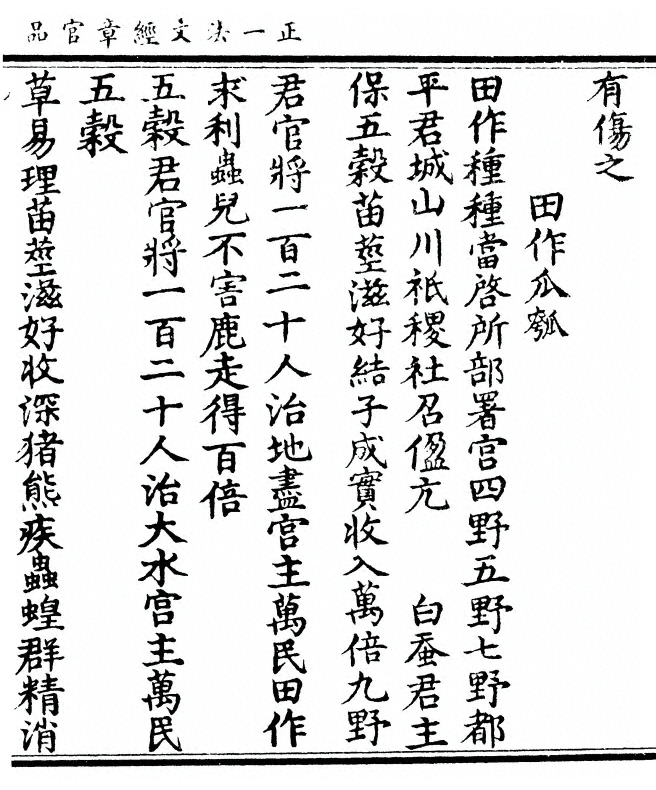 正一法文經章官品
有傷之
田作瓜瓠
田作種種當啓所部署宫四野五野七野都
平君城山川祇稷社召
白蚕君主
保五穀苗莖滋好結子成實收入萬倍九野
君官將一百二十人治地盡宫主萬民田作
求利蟲兒不害鹿走得百倍
五穀君官將一百二十人治大水宫主萬民
五穀
草易理苗莖滋好收深猪熊疾蟲蝗群精消